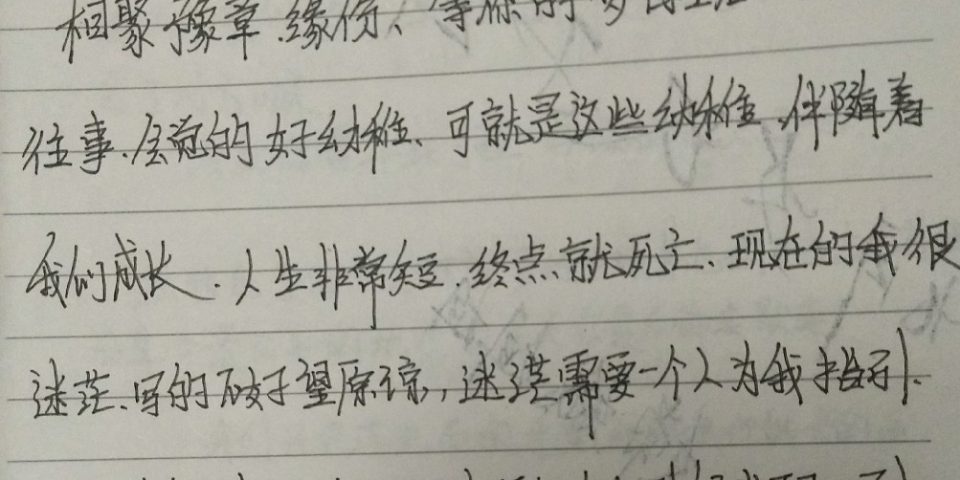 相聚像章.缘份、等你的
往事.会觉的好幼稚、可就是这些幼稚.伴随着
我们成长.人生非常短.终点就死亡、现在的我很
迷茫.写的不好望原谅,迷茫需要一个人为我指引.